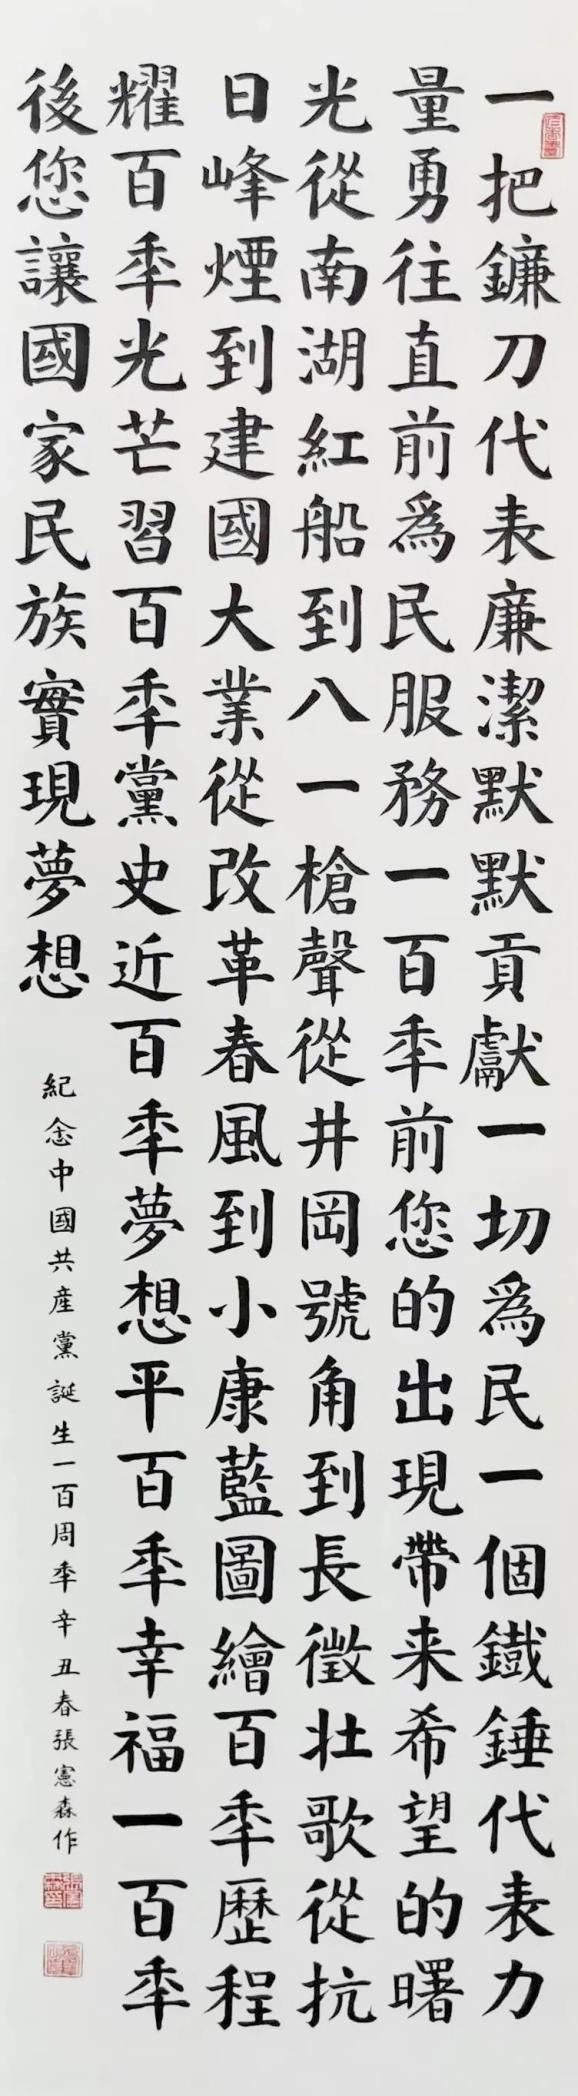 一把鐮刀代表廉潔默默貢獻一切爲民一個鐵錘代表力
量勇往直前爲民服務一百秊前您的出現帶来希望的曙
光從南湖紅船到八一槍聲從井岡號角到長徵壯歌從抗
日峰煙到建國大業從改革春風到小康藍圖繪百秊歷程
耀百秊光芒習百秊黨史近百秊夢想平百秊幸福一百秊
後您讓國家民族實現夢想
紀念中國共産黨誕生一百周秊辛丑春張憲森作